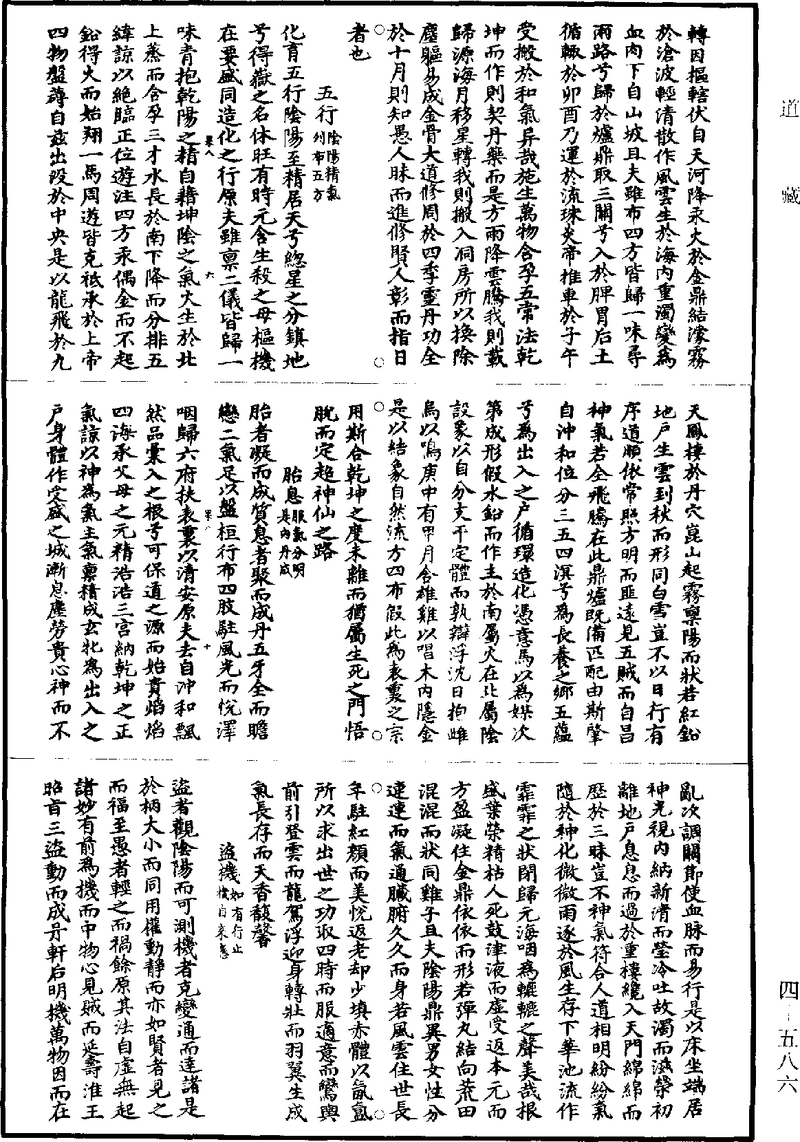 道藏
轉因摳轄伏自天河降汞火於金鼎結濛霧
於滄波輕清散作風雲生於海內重濁變為
血肉下自山坡且夫雖布四方皆歸一味尋
兩路兮歸於爐鼎取三關兮入於脾胃后土
循輙於卯酉乃運於流珠炎帝推車於子午
受搬於和氣异哉施生萬物含孕五常法乾
坤而作則契丹藥而是方雨降雲騰我則載
歸源海月移星轉我則搬入洞房所以換除
塵軀易成金骨大道修周於四季靈丹功全
於十月則知愚人昧而進修賢人彰而指日
者也
五行陰陽精氣列布五方
化育五行陰陽至精居天兮緫星之分鎮地
兮得嶽之名休旺有時元含生殺之母樞機
在要咸同造化之行原夫雖禀二儀皆歸一
味青抱乾陽之精自藉坤陰之氣火生於北
上蒸而含孕三才水長於南下降而分排五
緯諒以絶臨正位遊注四方汞偶金而不起
鉛得火而始翔一馬周遊皆克祗承於上帝
四物盤薄自茲出沒於中央是以龍飛於九
天鳳棲於丹穴崑山起霧禀陽而狀若紅鉛
地戶生雲到秋而形同白雪豈不以日行有
序道順依常照方明而匪遠見五賊而自昌
神氣若全飛騰在此鼎爐既備匹配由斯肇
自沖和位分三五四溟兮為長養之鄉五蘊
兮為出入之戶循環造化憑意馬以為媒次
第成形假水鉛而作主於南屬火在北屬陰
設象以自分支干定體而孰辯浮沈日抱雌
烏以鳴庚中有𠦑月含雄雞以唱木內隱金
是以結象自然流方四布假此為表裏之宗
用斯合乾坤之度未離而猶屬生死之門悟
脫而定超神仙之路
胎息服氣分明是內丹成
胎者凝而成質息者聚而成丹五牙全而瞻
戀二氣足以盤桓行布四肢駐風光而悅澤
咽歸六府扶表裏以清安原夫去自沖和飄
然品彙入之根兮可保道之源而始貴焰焰
四海承父母之元精浩浩三宮納乾坤之正
氣諒以神為氣主氣禀精成玄牝為出入之
戶身體作受盛之城漸息塵勞貴心神而不
亂次調關節使血脉而易行是以床坐端居
神光視內納新清而瑩冷吐故濁而滋榮初
離地戶息息而過於重樓纔入天門綿綿而
歷於三昧豈不神氣符合人道相明紛紛氣
隨於神化微微雨逐於風生存下華池流作
霏霏之狀閉歸元海咽為轆轆之聲美哉根
盛葉榮精枯人死鼓津液而虛受返本元而
方盈凝住金鼎依依而形若彈丸結向荒田
混混而狀同雞子且夫陰陽鼎異男女性分
連連而氣通臟腑久久而身若風雲住世長
年駐紅顏而美悅返老却少填赤體以氤氳
所以求出世之功取四時而服適意而鸞輿
前引登雲而龍駕浮迎身轉壯而羽翼生成
氣長存而天香馥馨
盜機如有行止機自來應
盜者觀陰陽而可測機者克變通而達諸是
於柄大小而同用權動靜而亦如賢者見之
而福至愚者輕之而禍餘原其法自虛無起
諸妙有前為機而中物心見賊而延壽淮王
昭首三盜動而成丹軒后明機萬物因而在
四－五八六